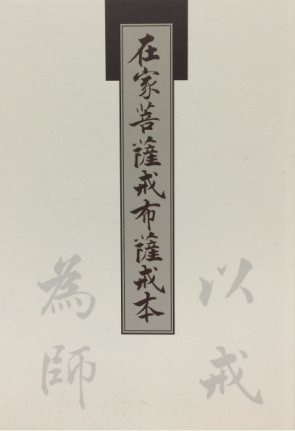 在家菩薩戒布薩戒本
以戒
為師